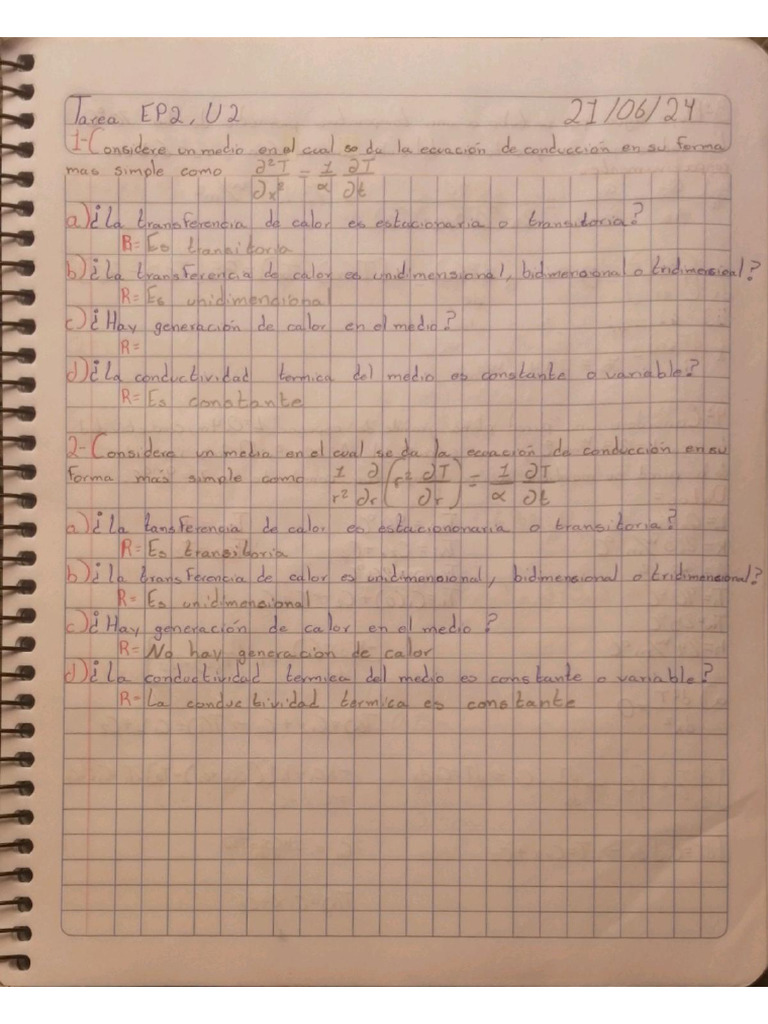 Tarea EP2, U2 21/06/24
1-Considere un medio en el cual se da la ecuación de conducción en su forma
mas simple como ∂²T/∂x² = 1/α ∂T/∂t
a)¿La transferencia de calor es estacionaria o transitoria?
R= Es transitoria
b)¿La transferencia de calor es unidimensional, bidimensional o tridimensional?
R= Es unidimensional
c)¿Hay generación de calor en el medio?
R=
d)¿La conductividad termica del medio es constante o variable?
R= Es constante
2-Considere un media en el cual se da la ecuación de conducción en su
forma más simple como 1/r² ∂/∂r (r² ∂T/∂r) = 1/α ∂T/∂t
a)¿La tansferencia de calor es estaciononaria o transitoria?
R= Es transitoria
b)¿la transferencia de calor es unidimensional, bidimensional o tridimensional?
R= Es unidimensional
c)¿Hay generación de calor en el medio?
R= No hay generacion de calor
d)¿La conductividad termica del medio es constante o variable?
R= La conductividad termica es constante